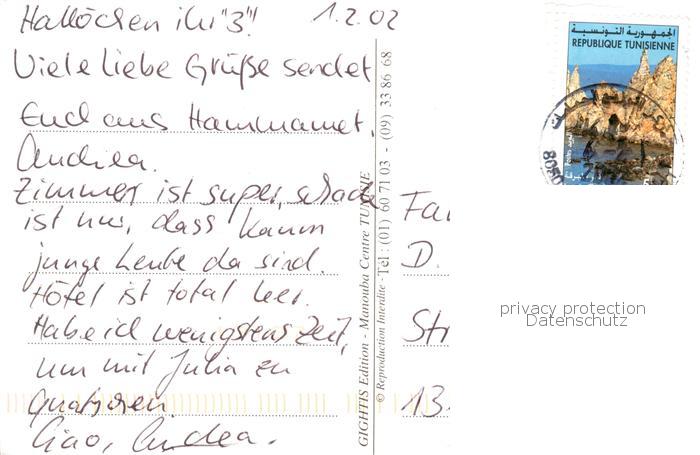 Hallöchen ihr "3"! 1.2.02
Viele liebe Grüße sendet
Euch aus Hammamet,
Andrea.
Zimmer ist super, schade
ist nur, dass kaum
junge Leute da sind.
Hotel ist total leer.
Habe ich wenigstens Zeit,
um mit Julia zu
quatschen.
Ciao, Andrea.
GIGHTIS Edition - Manouba Centre TUNISIE
© Reproduction Interdite - Tél : (01) 60 71 03 - (09) 33 86 68
الجمهورية التونسية
REPUBLIQUE TUNISIENNE
8050
Fa
D.
Str
13
privacy protection
Datenschutz